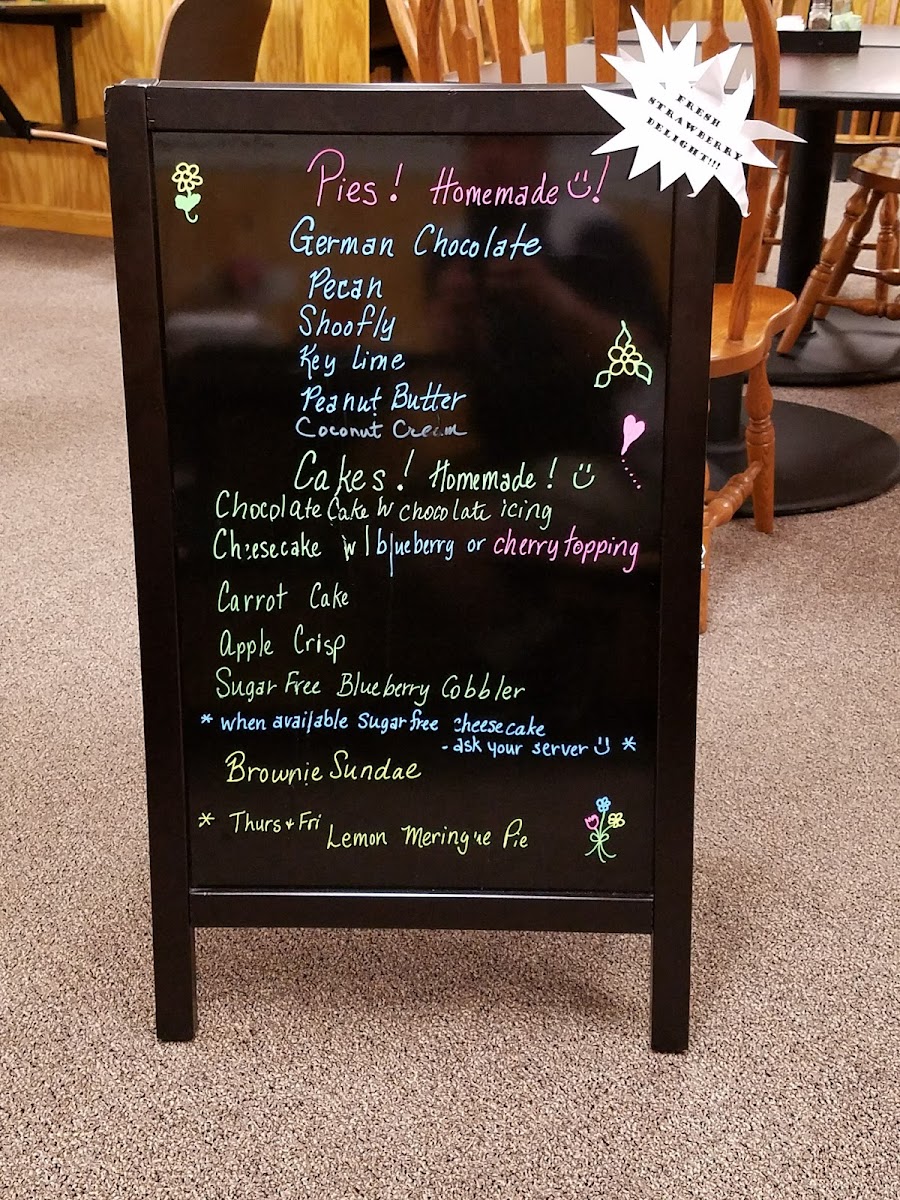 FRESH
STRAWBERRY
DELIGHT!!!
Pies! Homemade!
German Chocolate
Pecan
Shoofly
Key Lime
Peanut Butter
Coconut Cream
Cakes! Homemade!
Chocolate Cake w chocolate icing
Cheesecake w/ blueberry or cherry topping
Carrot Cake
Apple Crisp
Sugar Free Blueberry Cobbler
* when available Sugar free cheesecake
- ask your server *
Brownie Sundae
* Thurs + Fri
Lemon Meringue Pie